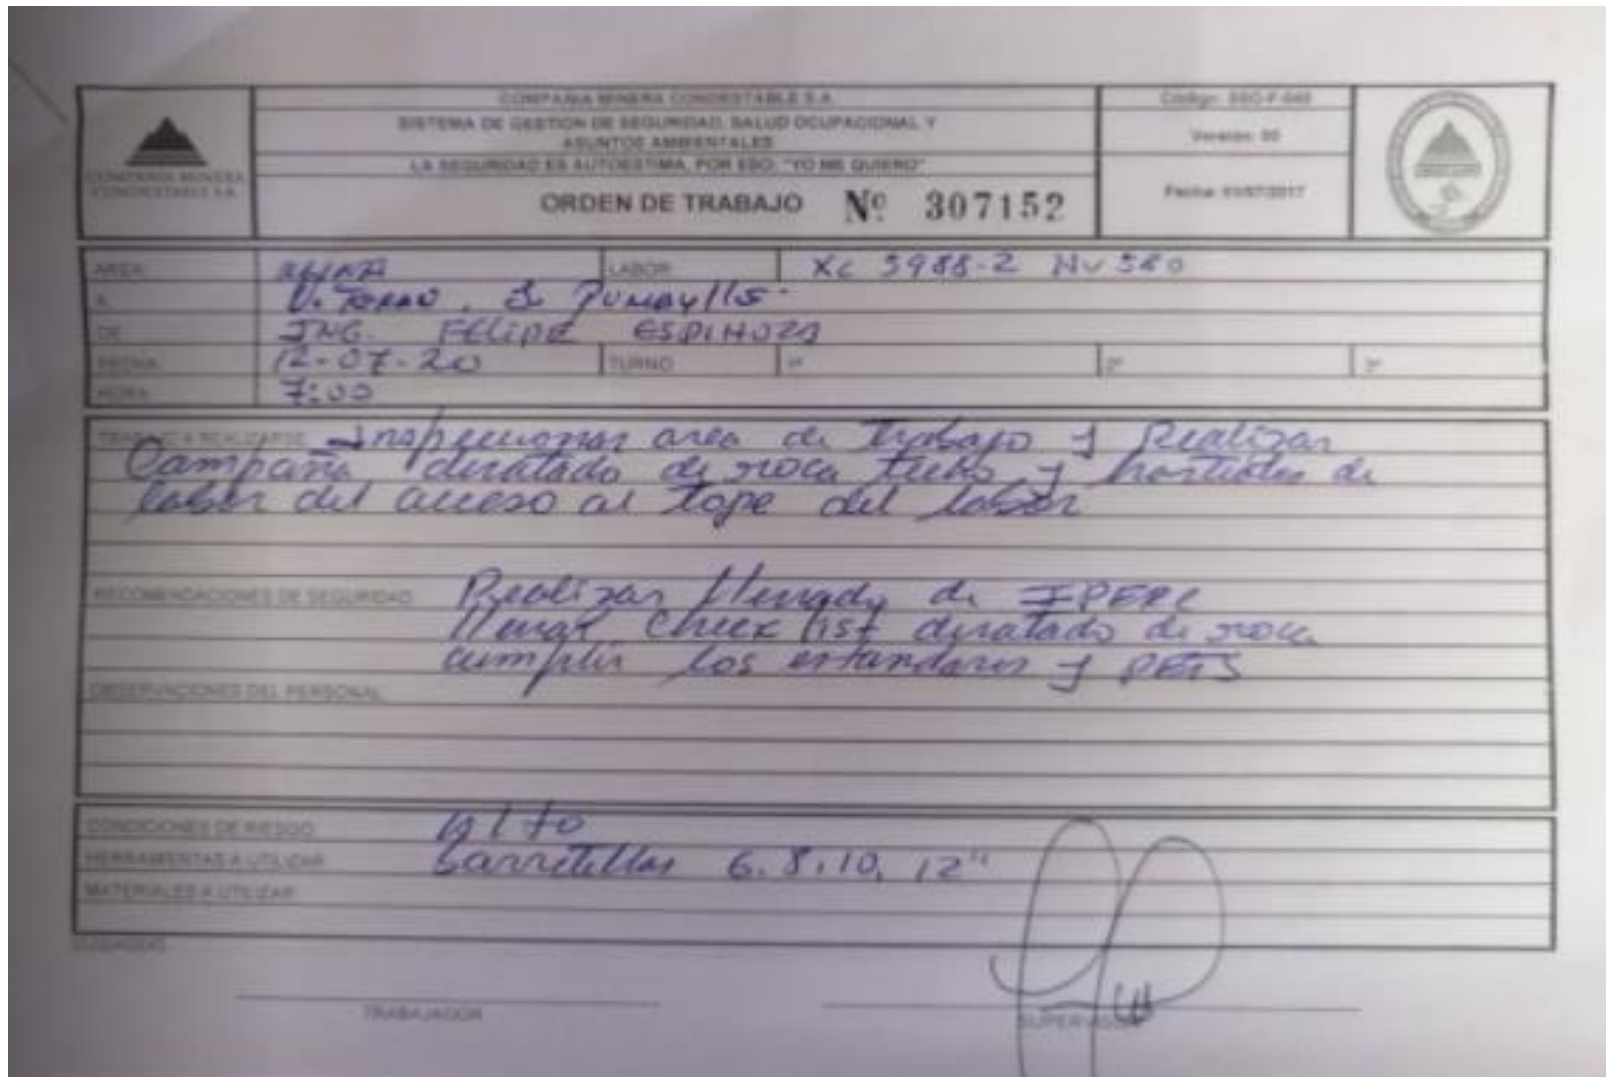 COMPAÑIA MINERA CONDESTABLE S.A.
COMPAÑIA MINERA CONDESTABLE S.A.
SISTEMA DE GESTION DE SEGURIDAD, SALUD OCUPACIONAL Y
ASUNTOS AMBIENTALES
LA SEGURIDAD ES AUTOESTIMA, POR ESO, "YO ME QUIERO"
ORDEN DE TRABAJO Nº 307152
Código: SSO-F-040
Versión: 00
Fecha: 03/07/2017
AREA: LABOR: Xc 5988-2 Nv 580
A:
DE ING. FELIPE ESPINOZA
FECHA: 12-07-20 TURNO 1º 2º 3º
HORA: 7:00
TRABAJO A REALIZARSE: Inspeccionar area de Trabajo y Realizar
Campaña desatado de roca techo y hastiales de
labor del acceso al tope del labor
RECOMENDACIONES DE SEGURIDAD: Realizar llenado de IPERC
llenar Check list desatado de roca
cumplir los estandares y PETS
OBSERVACIONES DEL PERSONAL:
CONDICIONES DE RIESGO: Alto
HERRAMIENTAS A UTILIZAR: barretillas 6, 8, 10, 12"
MATERIALES A UTILIZAR:
TRABAJADOR
SUPERVISOR